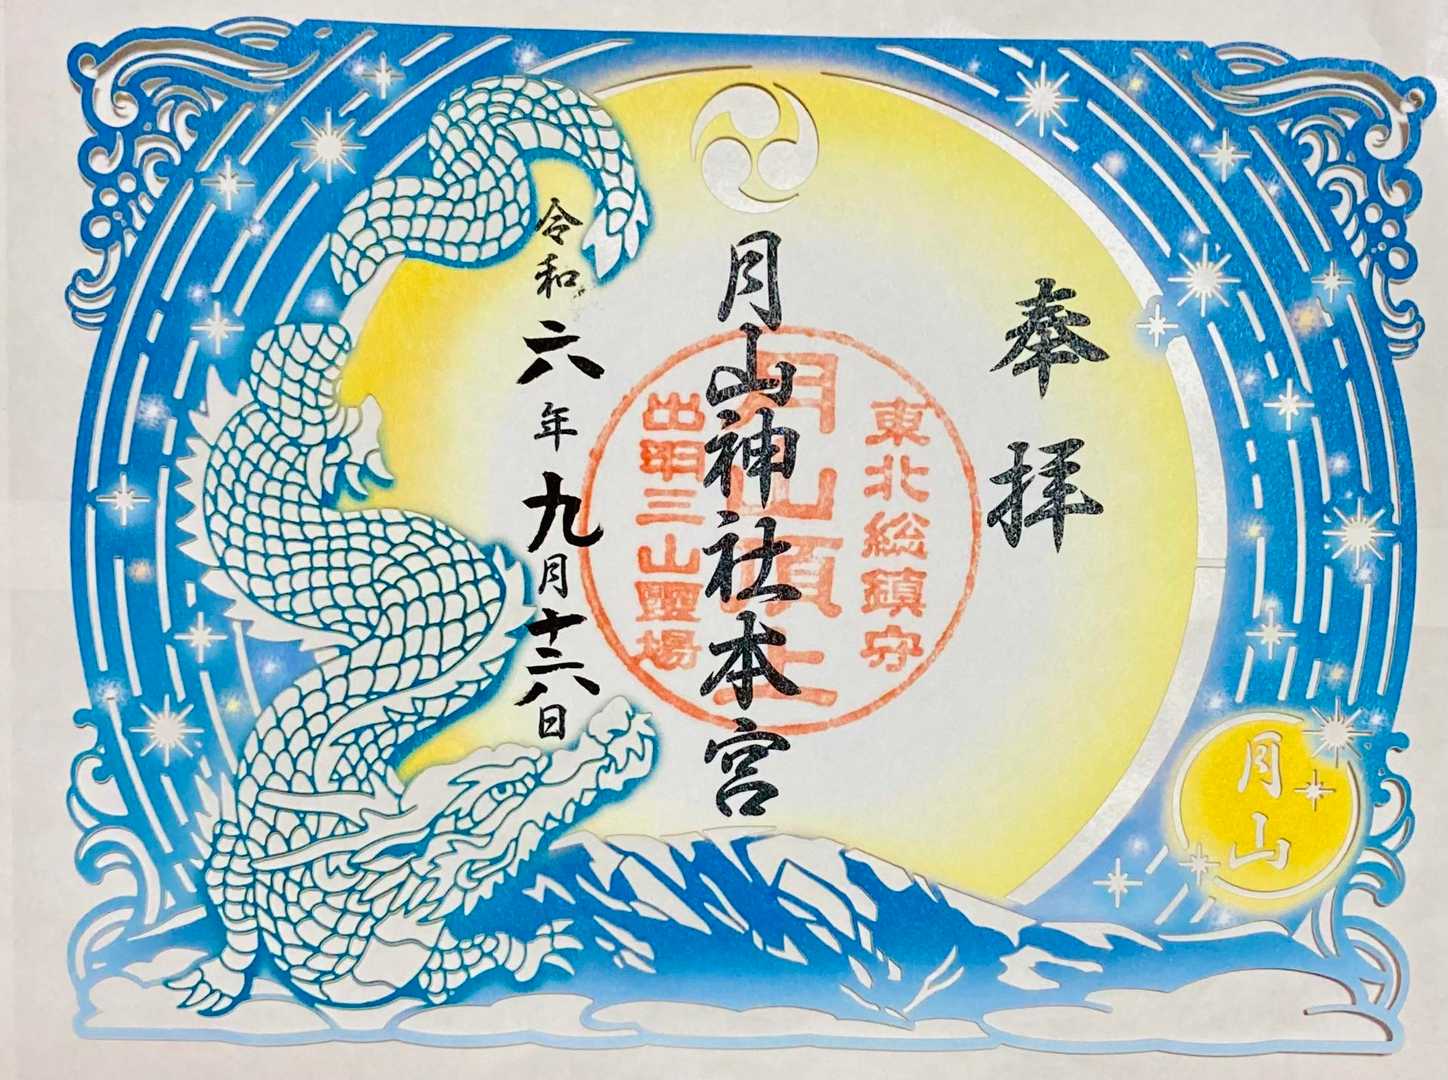 奉拝
月山神社本宮
令和六年九月十六日
東北総鎮守
月山頂上
出羽三山霊場
月山